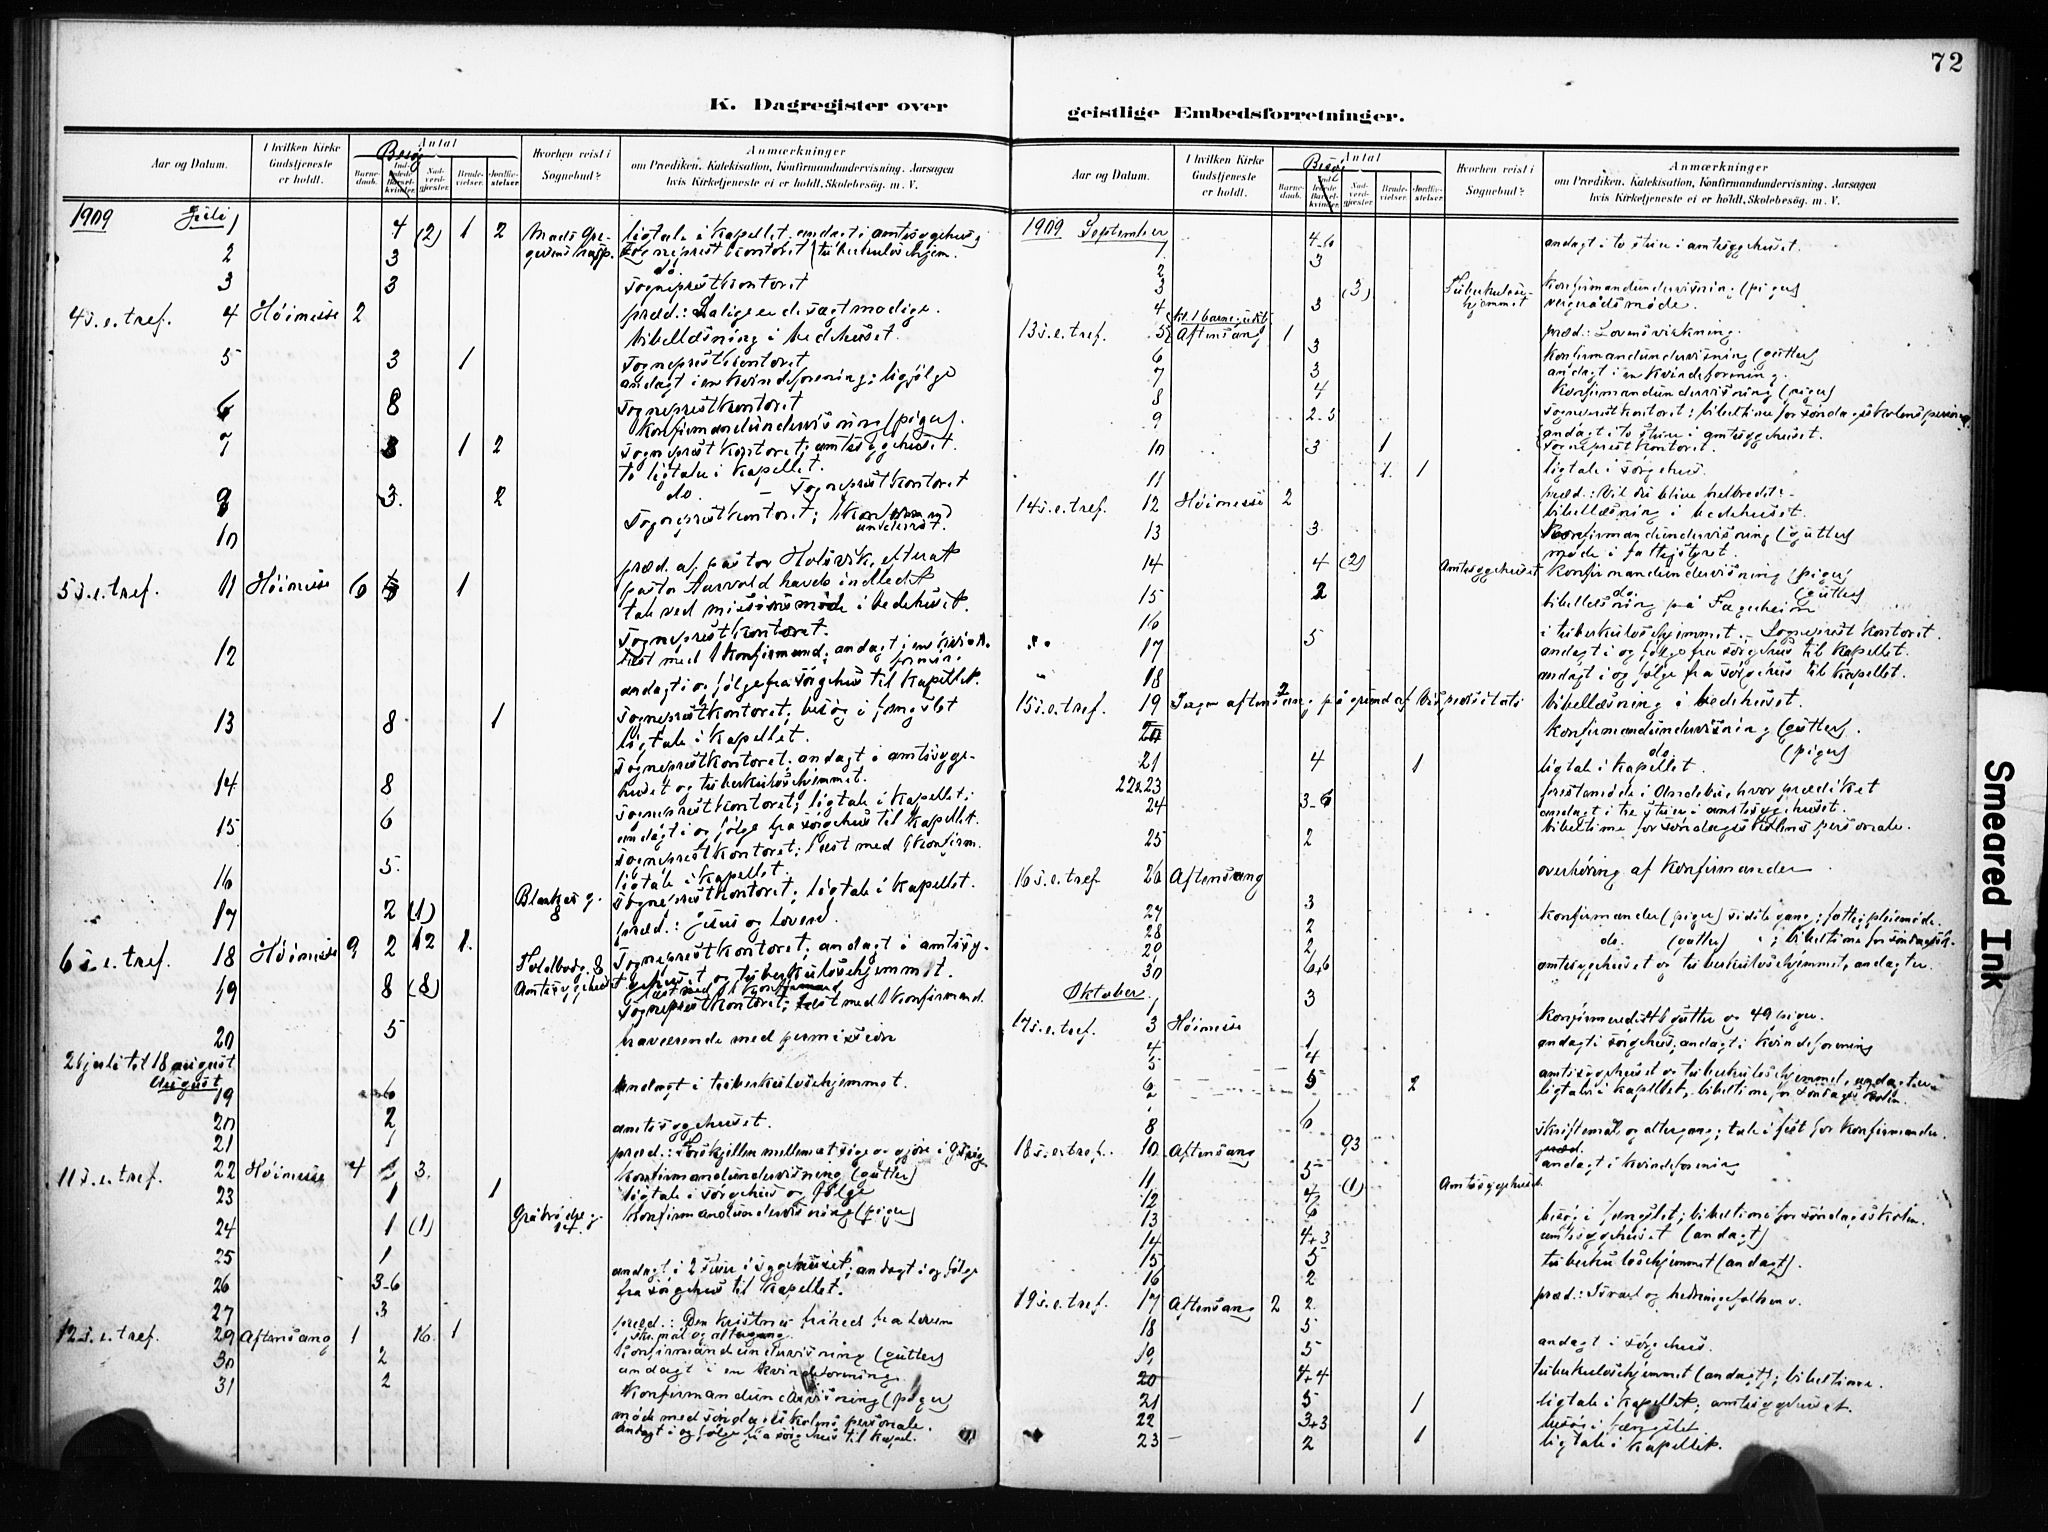 72
K. Dagregister over
geistlige Embedsforretninger.
Aar og Datum.
I hvilken Kirke Gudstjeneste er holdt.
Antal
Besøg
Barnedaab.
Indledede Barselkvinder.
Nadverdgjæster.
Brudevielser.
Jordfæstelser
Hvorhen reist i Sognebud?
Anmærkninger
om Prædiken, Katekisation, Konfirmandundervisning. Aarsagen
hvis Kirketjeneste ei er holdt, Skolebesøg. m. V.
1909 Juli 1 4 (2) 1 2 ligtale i kapellet. andagt i amtssygehus
2 3 sogneprestkontoret tuberkuloshjem.
do.
3 3 sogneprestkontoret
4 s. e. tref. 4 Høimesse 2 præd.: Salige er de sagtmodige.
bibellæsning i bedehuset.
5 3 1 sogneprestkontoret
andagt i en kvindeforening; ligfølge
6 8 sogneprestkontoret
konfirmandundervisning (piger).
7 3 1 2 sogneprestkontoret; amtssygehuset.
to ligtaler i kapellet.
3. 2 do. – sogneprestkontoret
sogneprestkontoret; konfirmand
undervist.
10
præd. af pastor Holsvik, efterat
5 s. e. tref. 11 Høimesse 6 1 pastor Aarvold havde indledet
tale ved missionsmøde i bedehuset.
sogneprestkontoret.
12 læst med 1 konfirmand; andagt i en kvindeforening.
andagt i og følge fra sørgehus til kapellet.
13 8 1 sogneprestkontoret; besøg i fængslet
ligtale i kapellet.
sogneprestkontoret; andagt i amtssyge-
14 8 huset og tuberkuloshjemmet.
sogneprestkontoret; ligtale i kapellet;
15 6 andagt i og følge fra sørgehus til kapellet.
sogneprestkontoret; læst med 1 konfirm.
16 5. ligtale i kapellet.
sogneprestkontoret; ligtale i kapellet.
17 2 (1) præd.: Jesus og loven.
6 s. e. tref. 18 Høimesse 9 2 12 1. sogneprestkontoret; andagt i amtssy-
gehuset og tuberkuloshjemmet.
19 8 Amtssygehuset læst med 1 konfirmand
sogneprestkontoret; læst med 1 konfirmand.
20 5
fraværende med permission
21 juli til 18 august
August
19 6 Andagt i tuberkuloshjemmet.
20 2 amtssygehuset.
21 1
11 s. e. tref. 22 Høimesse 4 3. præd.: Forskjellen mellem at sige og gjøre i Guds rige
konfirmandundervisning (gutter)
23 1 1 ligtale i sørgehus og følge
24 1 (1) konfirmandundervisning (piger)
25 1
26 3-6 andagt i 2 stuer i sygehuset; andagt i og følge
fra sørgehus til kapellet.
27 3
12 s. e. tref. 29 Aftensang 1 16. 1 præd.: Den kristnes frihed fra loven
skr. mål og altergang.
30 2 konfirmandundervisning (gutter)
andagt i en kvindeforening.
31 2 konfirmandundervisning (piger)
møde med søndagsskolens personale.
andagt i og følge fra sørgehus til kapel.
Aar og Datum.
I hvilken Kirke Gudstjeneste er holdt.
Antal
Besøg
Barnedaab.
Indledede Barselkvinder.
Nadverdgjæster.
Brudevielser.
Jordfæstelser
Hvorhen reist i Sognebud?
Anmærkninger
om Prædiken, Katekisation, Konfirmandundervisning. Aarsagen
hvis Kirketjeneste ei er holdt, Skolebesøg. m. V.
1909 September
1 4-6 andagt i to stuer i amtssygehuset.
2 3
3 (3) Tuberkulosehjemmet konfirmandundervisning (piger)
4 3 vergerådsmøde.
13 s. e. tref. 5 Aftensang 1 præd.: Lovens virkning.
6 3 konfirmandundervisning (gutter)
7 3 andagt i en kvindeforening.
8 4 konfirmandundervisning (piger)
9 2-5 sogneprestkontoret; bibeltime for søndagsskolens
andagt i to stuer i amtssygehuset.
10 3 1 sogneprestkontoret.
11 1. 1 ligtale i sørgehus.
14 s. e. tref. 12 Høimesse 2 præd.: Vil du blive helbredet?
bibellæsning i bedehuset.
13 3 konfirmandundervisning (gutter)
møde i fattigstyret.
14 4 (2) Amtssygehuset konfirmandundervisning (piger)
15 2 do. (gutter)
bibellæsning på Fagerheim
16 i tuberkuloshjemmet. – Sogneprestkontoret.
17 5 andagt i og følge fra sørgehus til kapellet.
18 andagt i og følge fra sørgehus til kapellet.
15 s. e. tref. 19 Ingen aftensang på grund af bispevisitats bibellæsning i bedehuset.
20 konfirmandundervisning (gutter).
do. (piger)
21 4 1 ligtale i kapellet.
22 & 23 prestemøde i Andebu, hvor prædiket
24 3-6 andagt i tre stuer i amtssygehuset.
bibeltime for søndagsskolens personale.
25 2
16 s. e. tref 26 Aftensang overhøring af konfirmander
27 3 konfirmander (piger) sidste gang; fattigpleiemøde.
28 2 do. (gutter)
29 2
30 6+6 amtssygehuset og tuberkuloshjemmet, andagter.
Oktober 1 3
17 s. e. tref. 3 Høimesse konfirmeredes gutter og 49 piger.
4 1 andagt i sørgehus, andagt i kvindeforening
5 4
6 5 2 amtssygehuset og tuberkuloshjemmet, andagter
ligtaler i kapellet, bibeltime for søndagsskolen.
8 6
18 s. e. tref. 10 Aftensang 93 skriftemål og altergang; tale i fest for konfirmander.
præd.
andagt i kvindeforening
11 5
12 4 (1) Amtssygehuset
13 6 besøg i fængslet; bibeltime for søndagsskolen.
14 4+3 amtssygehuset (andagt)
15 5 tuberkuloshjemmet (andagt).
16 2
19 s. e. tref. 17 Aftensang 2 2. præd.: Israel og hedningefolkene.
18 5
19 5 andagt i sørgehus.
20 4+4 tuberkuloshjemmet (andagt); bibeltime.
21 5 1 ligtale i kapellet; amtssygehuset.
22 3+3 besøg i fængslet.
23 2 1 ligtale i kapellet.
Smeared Ink